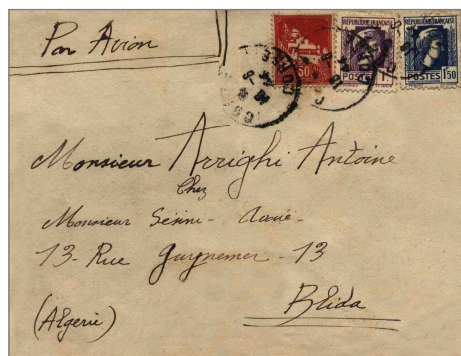 Par Avion
50
RÉPUBLIQUE FRANÇAISE
POSTES
RÉPUBLIQUE FRANÇAISE
POSTES 1F50
Monsieur Arrighi Antoine
Chez
Monsieur
13 - Rue Guynemer - 13
Blida
(Algerie)